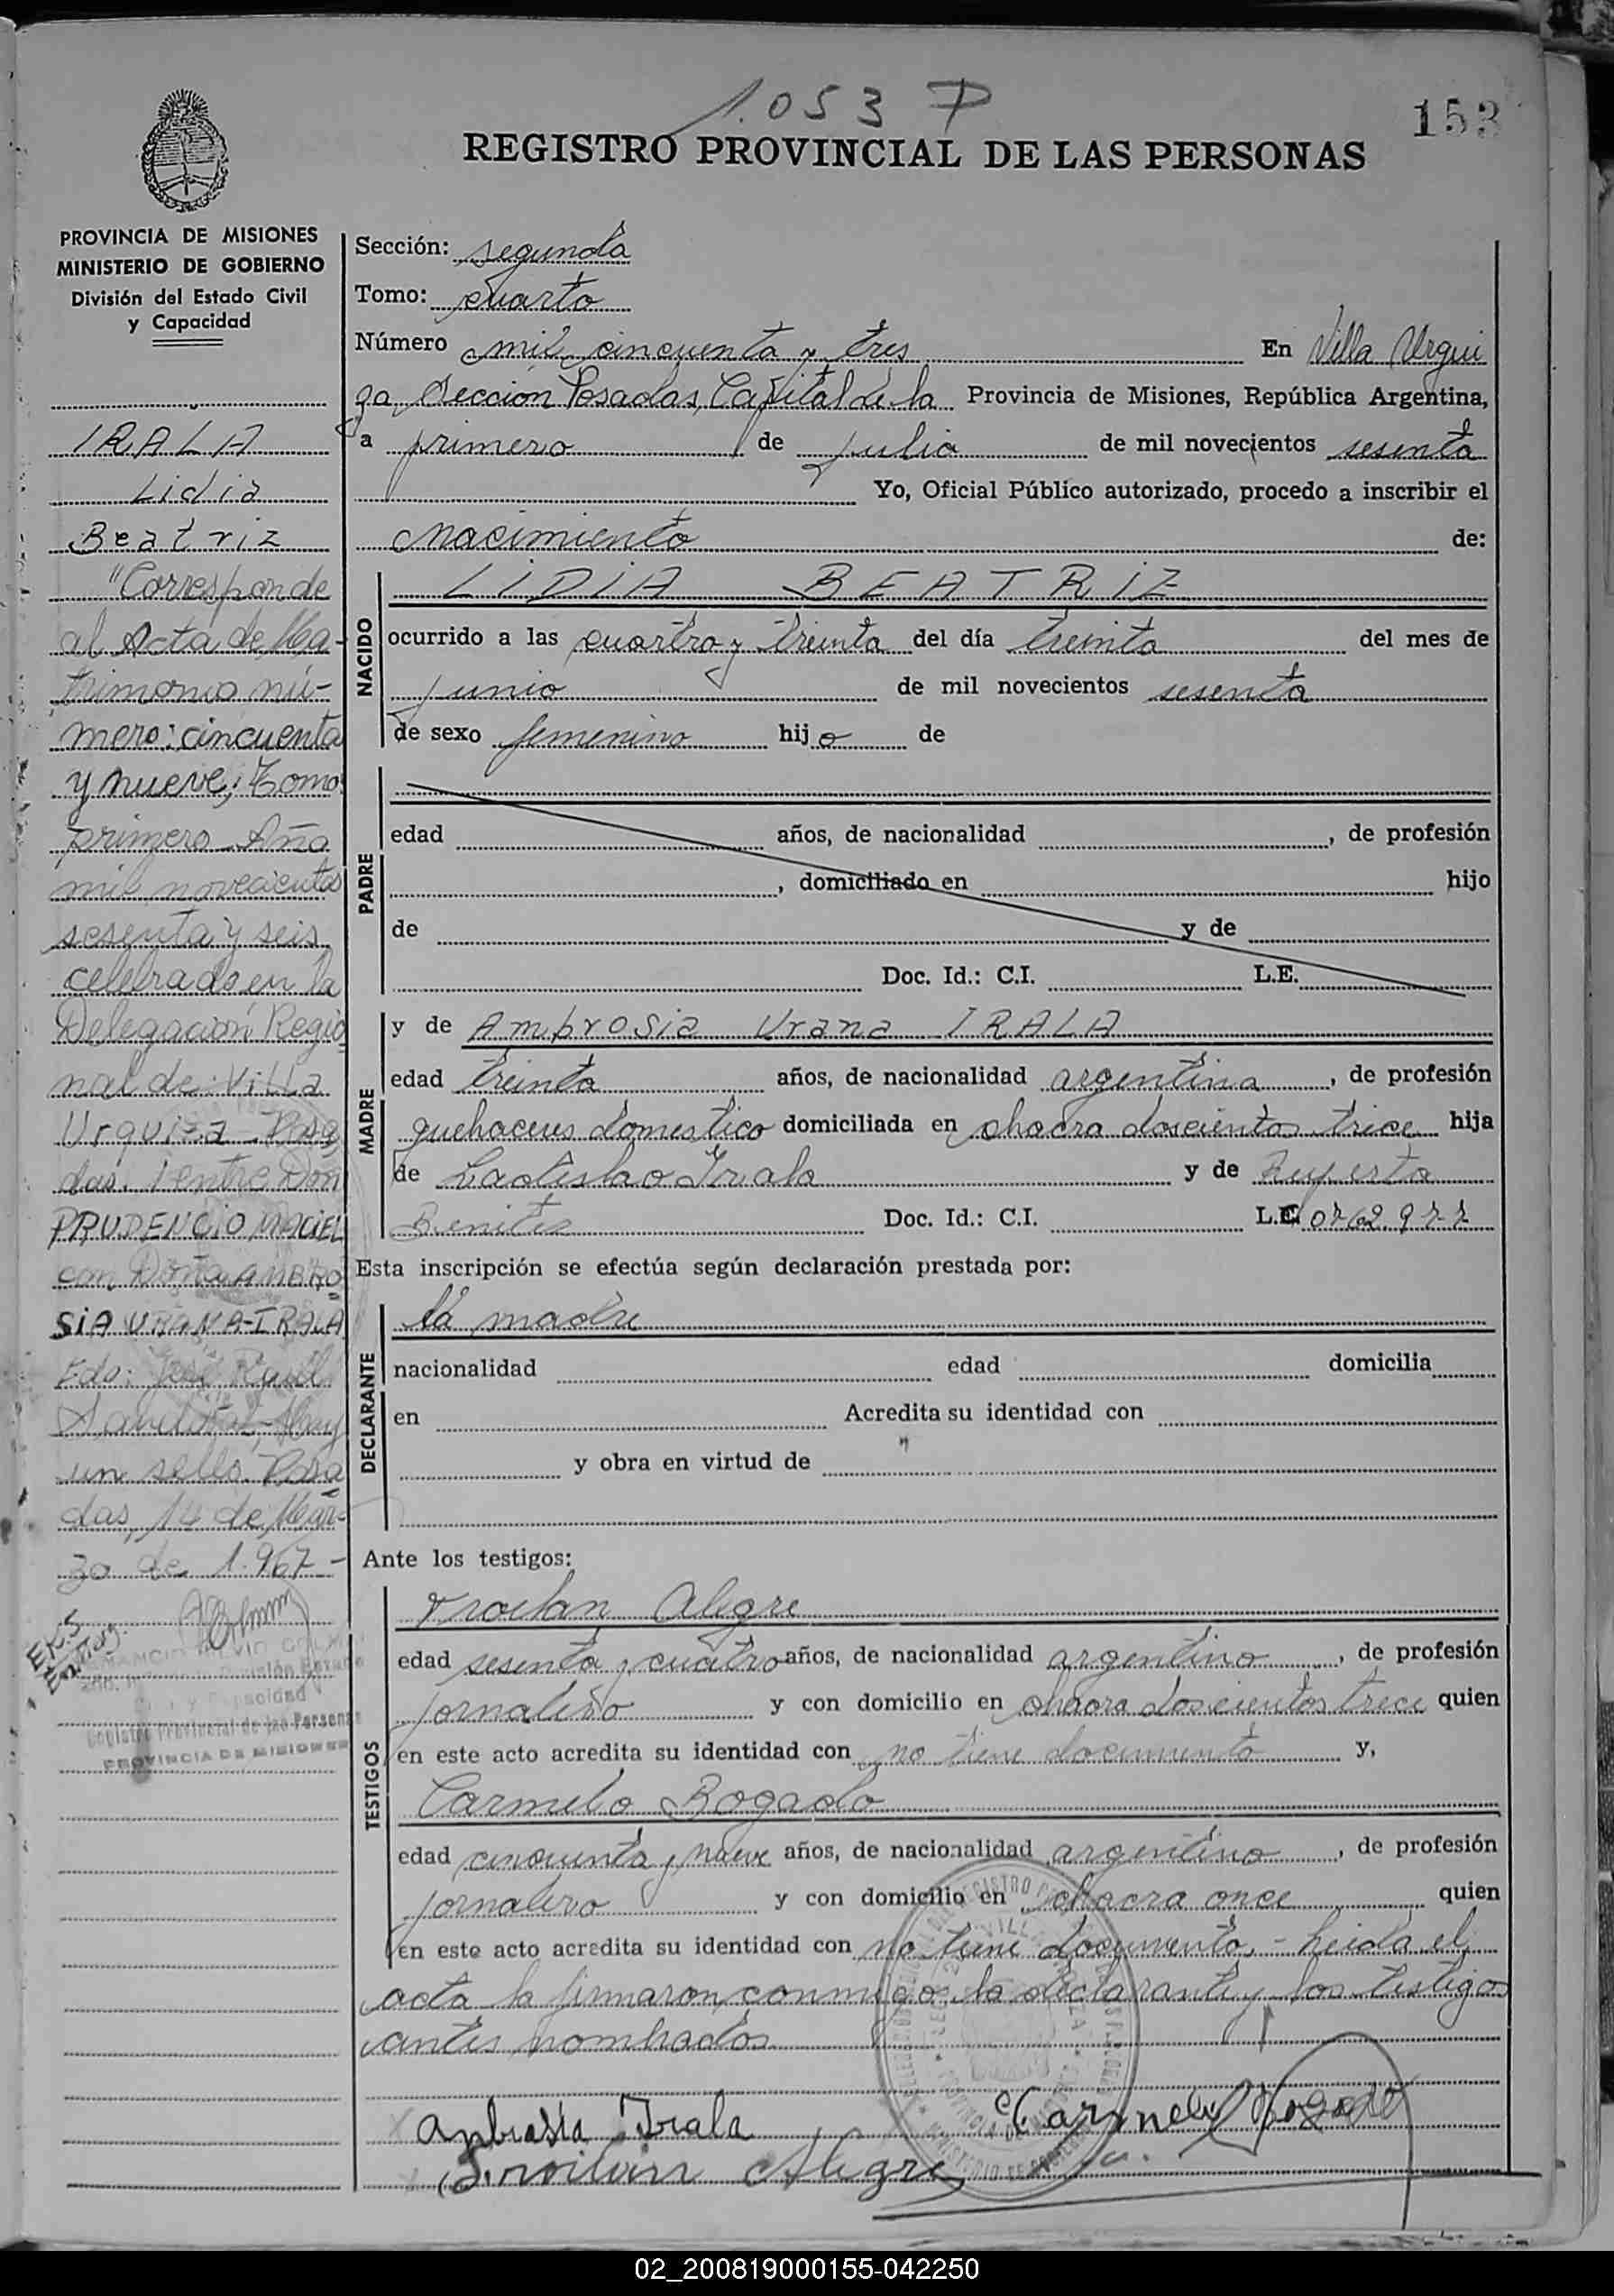 1.053 P
153
REGISTRO PROVINCIAL DE LAS PERSONAS
PROVINCIA DE MISIONES
MINISTERIO DE GOBIERNO
División del Estado Civil
y Capacidad
IRALA
Lidia
Beatriz
"Corresponde
al Acta de Ma-
trimonio nú-
mero: cincuenta
y nueve; Tomo
primero Año
mil novecientos
sesenta y seis
celebrado en la
Delegación Regio
nal de Villa
Urquiza Posa
das. entre Don
PRUDENCIO MACIEL
con Doña AMBRO
SIA URANA-IRALA
Fdo: José
Hay
un sello. Posa
das, 14 de Mar-
zo de 1.967-
Registro Provincial de las Personas
PROVINCIA DE MISIONES
Sección: segunda
Tomo: cuarto
Número mil cincuenta y tres En Villa Urqui
za Sección Posadas, Capital de la Provincia de Misiones, República Argentina,
a primero de julio de mil novecientos sesenta
Yo, Oficial Público autorizado, procedo a inscribir el
nacimiento de:
NACIDO
LIDIA BEATRIZ
ocurrido a las cuatro y treinta del día treinta del mes de
junio de mil novecientos sesenta
de sexo femenino hijo de
PADRE
edad años, de nacionalidad , de profesión
, domiciliado en hijo
de y de
Doc. Id.: C.I. L.E.
MADRE
y de Ambrosia Urana IRALA
edad treinta años, de nacionalidad argentina , de profesión
quehaceres domestico domiciliada en chacra doscientos trece hija
de Ladislao Irala y de Ruperta
Benitez Doc. Id.: C.I. L.C.
Esta inscripción se efectúa según declaración prestada por:
DECLARANTE
la madre
nacionalidad edad domicilia
en Acredita su identidad con
y obra en virtud de
Ante los testigos:
TESTIGOS
Froilan Alegre
edad sesenta y cuatro años, de nacionalidad argentino , de profesión
jornalero y con domicilio en chacra doscientos trece quien
en este acto acredita su identidad con no tiene documento y,
Carmelo Bogado
edad cincuenta y nueve años, de nacionalidad argentino , de profesión
jornalero y con domicilio en chacra once quien
en este acto acredita su identidad con no tiene documento.- Leida el
acta la firmaron conmigo la declarante y los testigos
antes nombrados
Anbrosia Irala
Carmelo Bogado
Froilan Alegre
02_200819000155-042250